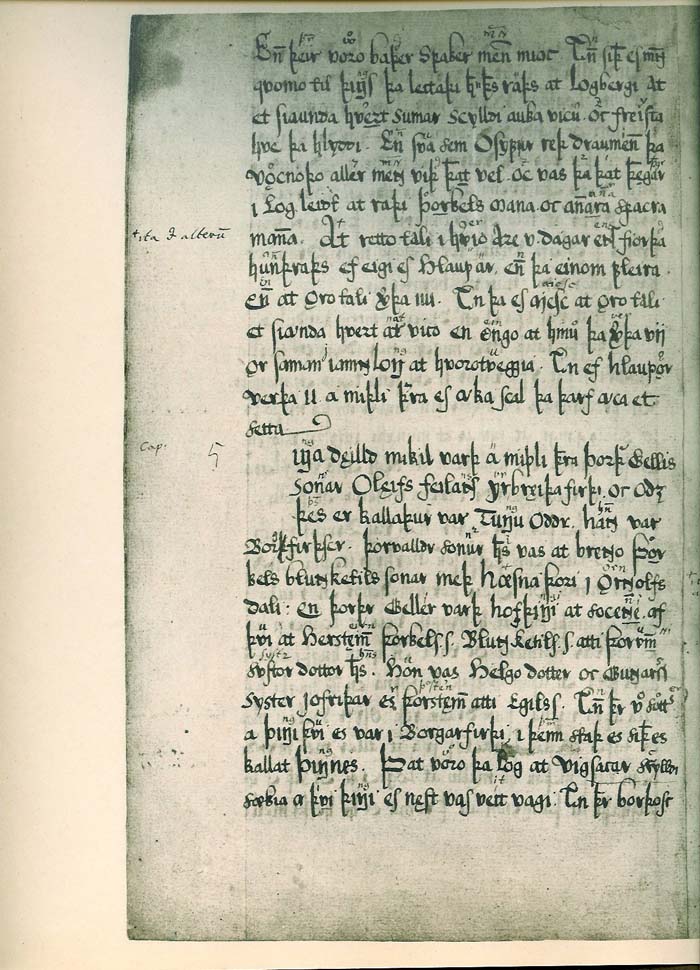 En̄ þeir vo̊ro baþer Spaker men̄ mioc En̄ siþ es mn̄
qvomo til þings þa leitaþi hans raþs at Logbergi At
et siaunda hvert Sumar Scylldi auka vicu. oc freista
hve þa hlyddi. En̄ sva sem Osyfur reþ draumen̄ þa
vo̊cnoþo aller menn viþ þat vel. oc vas þa þat þegar
i Log leidt at raþi Þorkels mana oc an̄ara spacra
+ ita ī alterū
man̄a. At retto tali i hverio Are v. dagar ens fiorþa
hun̄draþs ef eigi es hlaupar. en̄ þa einom fleira.
en̄ at oro tali viþa IIII. En þa es aiesc at oro tali
et siaunda hvert at vico en engo at hinu þa verþa vij
or saman iamn long at hvorotveggia. En ef hlaupor
verþa II. a miþli þera es auka scal þa þarf auca et
setta
Cap. 5
inga deilld mikil varþ a miþli þera þorþar Gellis
sonar Oleifs feilans yr breiþafirþi. oc Oddz
þes er kallaþur var Tungu Oddr. hann var
Borgfirþser. þorvalldr sonur hs̄ vas at breno Þor
kels blundketils sonar meþ Hœsnaþori i Ornolfs
dali: en þorþr Geller varþ hofþingi at socenne. af
þvi at Herstein̄ þorkels.s. Blundketils.s. atti þorunni
systor dottor hs̄. Hon vas Helgo dotter oc Gunars
syster jofriþar es þorstein̄ atti Egilss. En þr vo̊ sotter
a þingi þvi es var i Borgarfirþi, i þeim staþ es siþ es
kallat þingnes. Þat vo̊ro þa Log at vigsacar scylldi
sœkia a þvi þingi es nest vas vett vagi. En þr borþosc